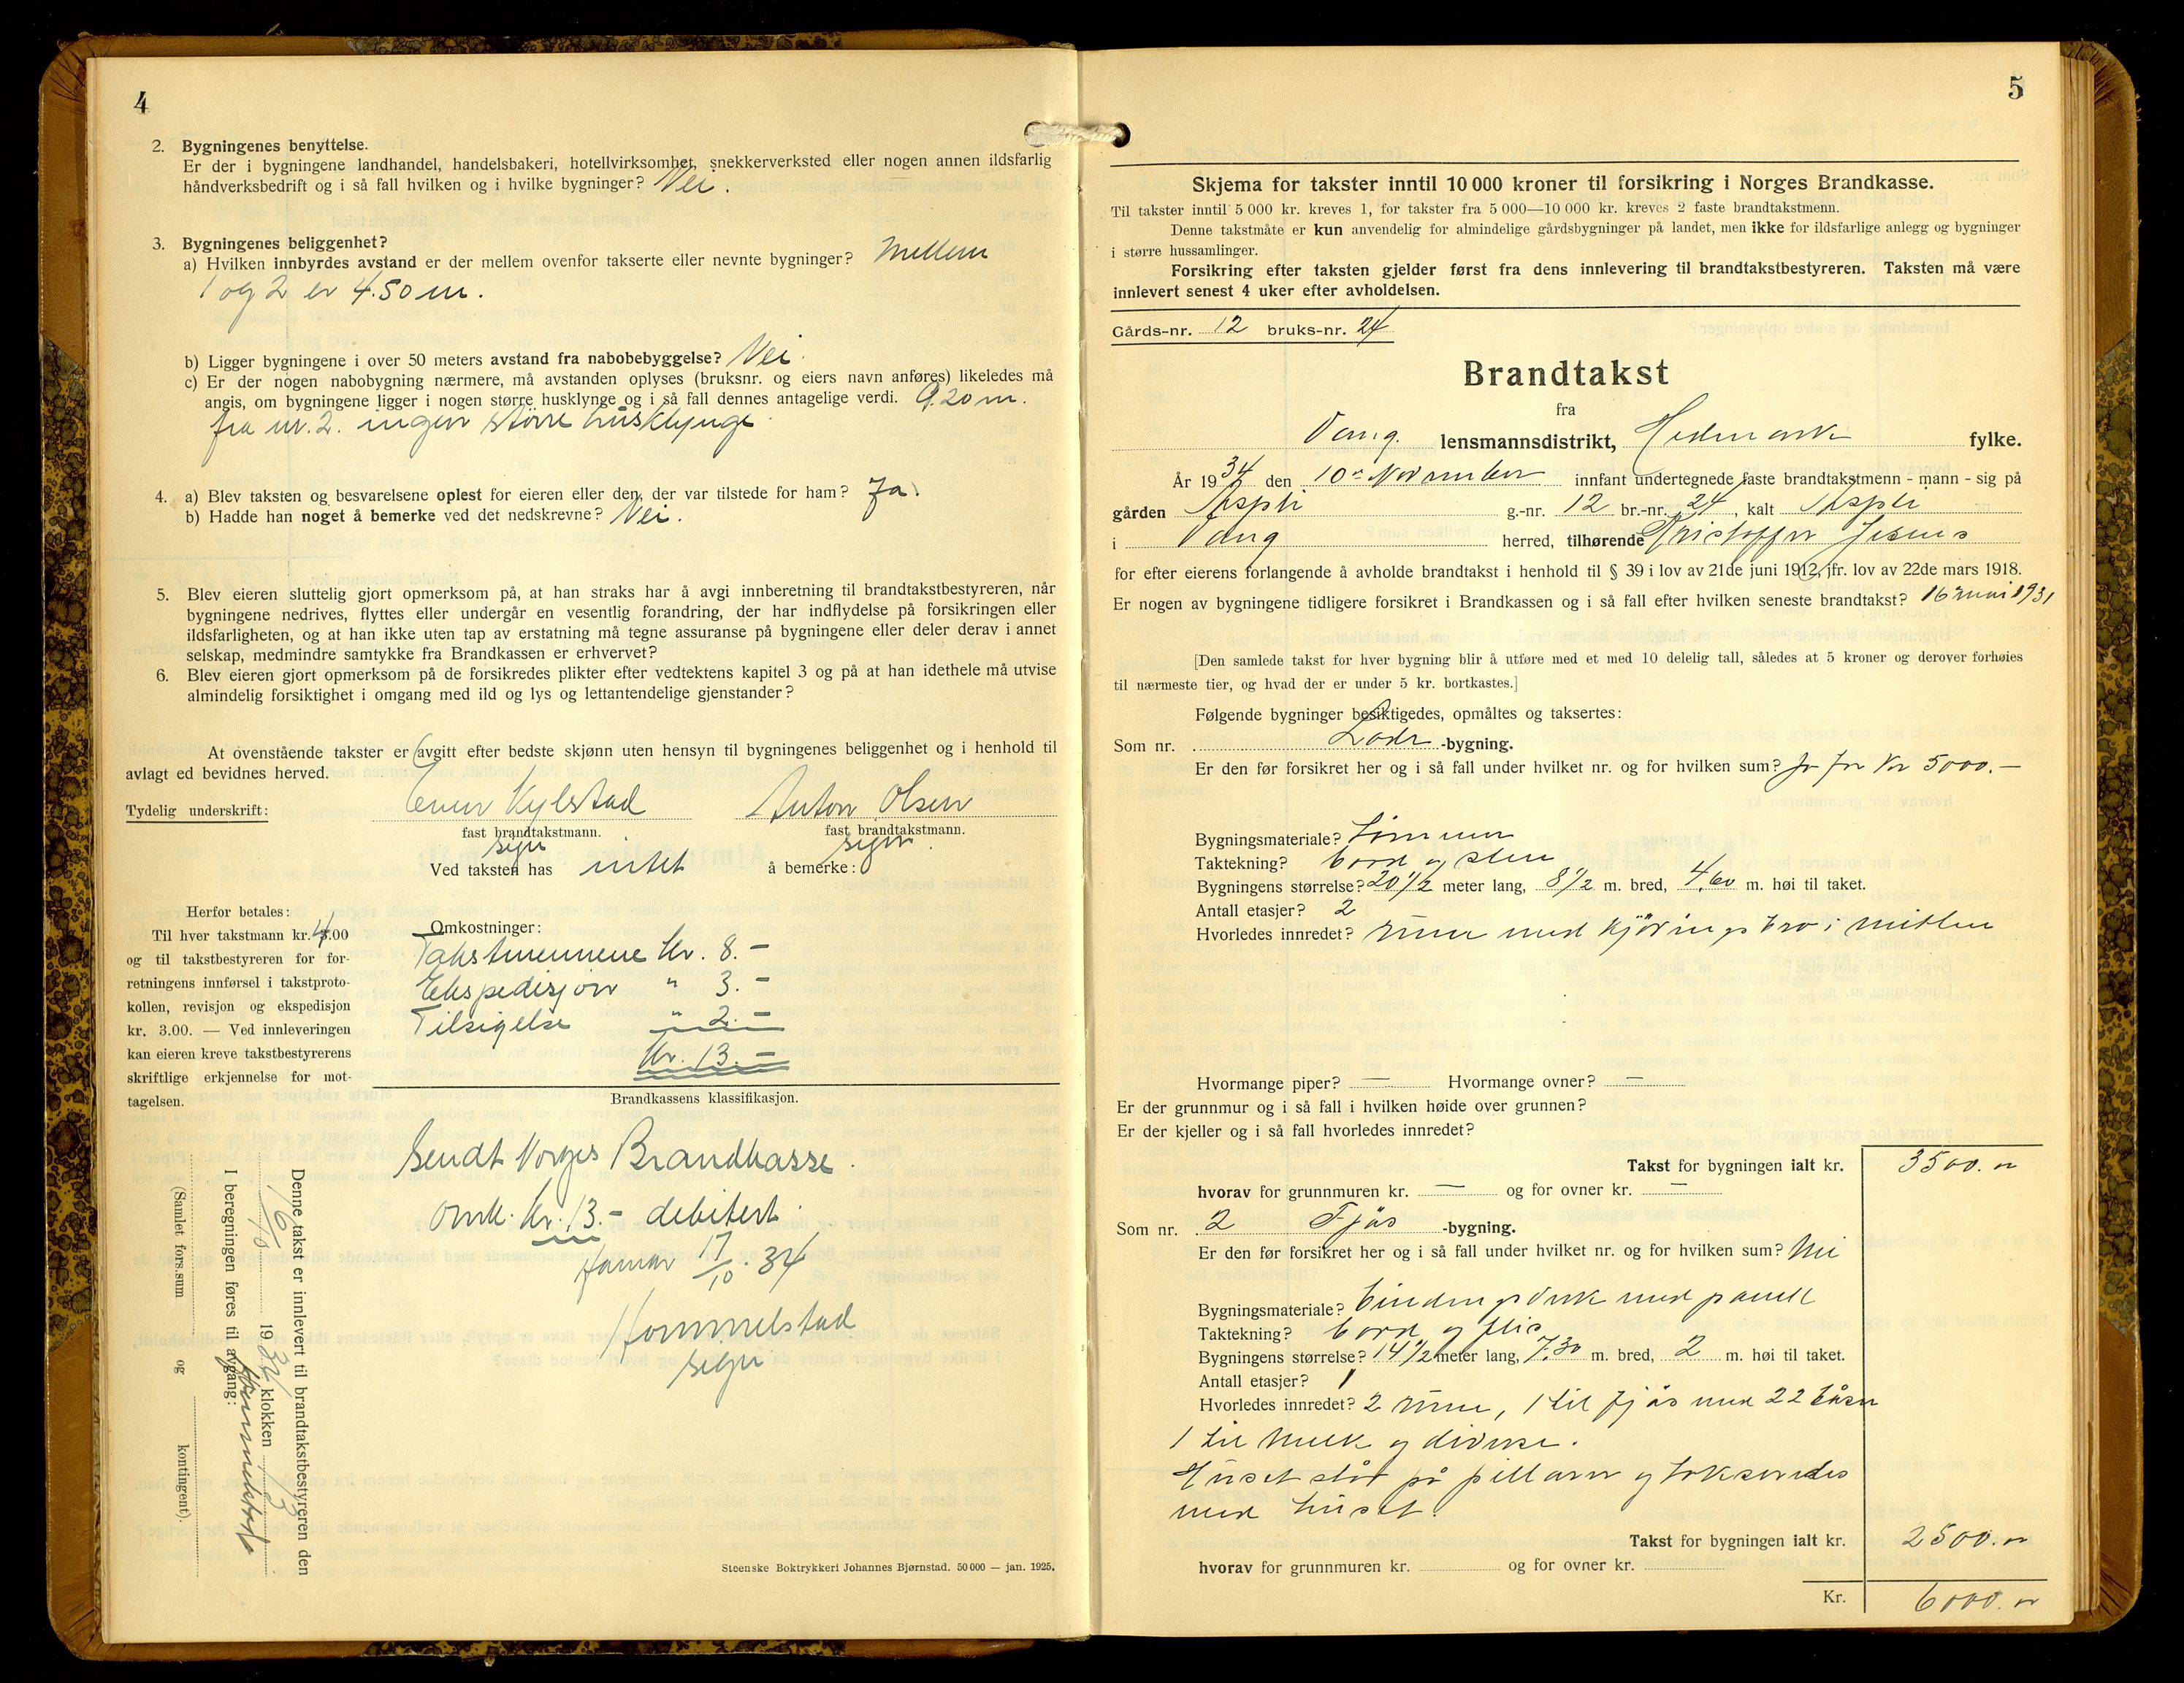 4
2. Bygningenes benyttelse.
Er der i bygningene landhandel, handelsbakeri, hotellvirksomhet, snekkerverksted eller nogen annen ildsfarlig
håndverksbedrift og i så fall hvilken og i hvilke bygninger? Nei.
3. Bygningenes beliggenhet?
a) Hvilken innbyrdes avstand er der mellem ovenfor takserte eller nevnte bygninger? Mellem
1 og 2 er 4.50 m.
b) Ligger bygningene i over 50 meters avstand fra nabobebyggelse? Nei.
c) Er der nogen nabobygning nærmere, må avstanden oplyses (bruksnr. og eiers navn anføres) likeledes må
angis, om bygningene ligger i nogen større husklynge og i så fall dennes antagelige verdi. 9.20 m.
fra nr. 2. ingen større husklynge.
4. a) Blev taksten og besvarelsene oplest for eieren eller den, der var tilstede for ham? Ja.
b) Hadde han noget å bemerke ved det nedskrevne? Nei.
5. Blev eieren sluttelig gjort opmerksom på, at han straks har å avgi innberetning til brandtakstbestyreren, når
bygningene nedrives, flyttes eller undergår en vesentlig forandring, der har indflydelse på forsikringen eller
ildsfarligheten, og at han ikke uten tap av erstatning må tegne assuranse på bygningene eller deler derav i annet
selskap, medmindre samtykke fra Brandkassen er erhvervet?
6. Blev eieren gjort opmerksom på de forsikredes plikter efter vedtektens kapitel 3 og på at han idethele må utvise
almindelig forsiktighet i omgang med ild og lys og lettantendelige gjenstander?
At ovenstående takster er avgitt efter bedste skjønn uten hensyn til bygningenes beliggenhet og i henhold til
avlagt ed bevidnes herved.
Tydelig underskrift: Even Kylstad Anton Olsen
fast brandtakstmann. fast brandtakstmann.
sign sign.
Ved taksten has intet å bemerke:
Herfor betales:
Til hver takstmann kr. 4.00
og til takstbestyreren for for-
retningens innførsel i takstproto-
kollen, revisjon og ekspedisjon
kr. 3.00. — Ved innleveringen
kan eieren kreve takstbestyrerens
skriftlige erkjennelse for mot-
tagelsen.
Omkostninger:
Takstmennene kr. 8.-
Ekspedisjon " 3.-
Tilsigelse " 2.-
Kr. 13.-
Brandkassens klassifikasjon.
Sendt Norges Brandkasse.
Omk. kr. 13.- debitert.
Hamar 17/10. 34
Hommelstad
sign
Denne takst er innlevert til brandtakstbestyreren den
16/10 1934 klokken 13
I beregningen føres til avgang:
Hommelstad
(Samlet fors.sum og kontingent).
Steenske Boktrykkeri Johannes Bjørnstad. 50 000 — jan. 1925.
5
Skjema for takster inntil 10 000 kroner til forsikring i Norges Brandkasse.
Til takster inntil 5 000 kr. kreves 1, for takster fra 5 000—10 000 kr. kreves 2 faste brandtakstmenn.
Denne takstmåte er kun anvendelig for almindelige gårdsbygninger på landet, men ikke for ildsfarlige anlegg og bygninger
i større hussamlinger.
Forsikring efter taksten gjelder først fra dens innlevering til brandtakstbestyreren. Taksten må være
innlevert senest 4 uker efter avholdelsen.
Gårds-nr. 12 bruks-nr. 24
Brandtakst
fra
Vang. lensmannsdistrikt, Hedmark fylke.
År 1934 den 10de November innfant undertegnede faste brandtakstmenn - mann - sig på
gården Aspli g.-nr. 12 br.-nr. 24, kalt Aspli
i Vang herred, tilhørende Kristoffer Jesnes
for efter eierens forlangende å avholde brandtakst i henhold til § 39 i lov av 21de juni 1912, jfr. lov av 22de mars 1918.
Er nogen av bygningene tidligere forsikret i Brandkassen og i så fall efter hvilken seneste brandtakst? 16 mai 1931
[Den samlede takst for hver bygning blir å utføre med et med 10 delelig tall, således at 5 kroner og derover forhøies
til nærmeste tier, og hvad der er under 5 kr. bortkastes.]
Følgende bygninger besiktigedes, opmåltes og taksertes:
Som nr. Lade -bygning.
Er den før forsikret her og i så fall under hvilket nr. og for hvilken sum? Ja for Kr 5000.—
Bygningsmateriale? Tømmer
Taktekning? bord og sten
Bygningens størrelse? 20 1/2 meter lang, 8 1/2 m. bred, 4,60 m. høi til taket.
Antall etasjer? 2
Hvorledes innredet? rume med kjørings bro i mitten
Hvormange piper? — Hvormange ovner? —
Er der grunnmur og i så fall i hvilken høide over grunnen?
Er der kjeller og i så fall hvorledes innredet?
Takst for bygningen ialt kr. 3500.00
hvorav for grunnmuren kr. — og for ovner kr. —
Som nr. 2 Fjøs -bygning.
Er den før forsikret her og i så fall under hvilket nr. og for hvilken sum? Nei
Bygningsmateriale? bindingsverk med panell
Taktekning? bord og flis
Bygningens størrelse? 14 1/2 meter lang, 7.30 m. bred, 2 m. høi til taket.
Antall etasjer? 1
Hvorledes innredet? 2 rume, 1 til fjøs med 22 båser
1 til melk og diverse.
Huset står på pillarer og takseredes
med huset.
Takst for bygningen ialt kr. 2500.00
hvorav for grunnmuren kr. og for ovner kr.
Kr. 6000.00